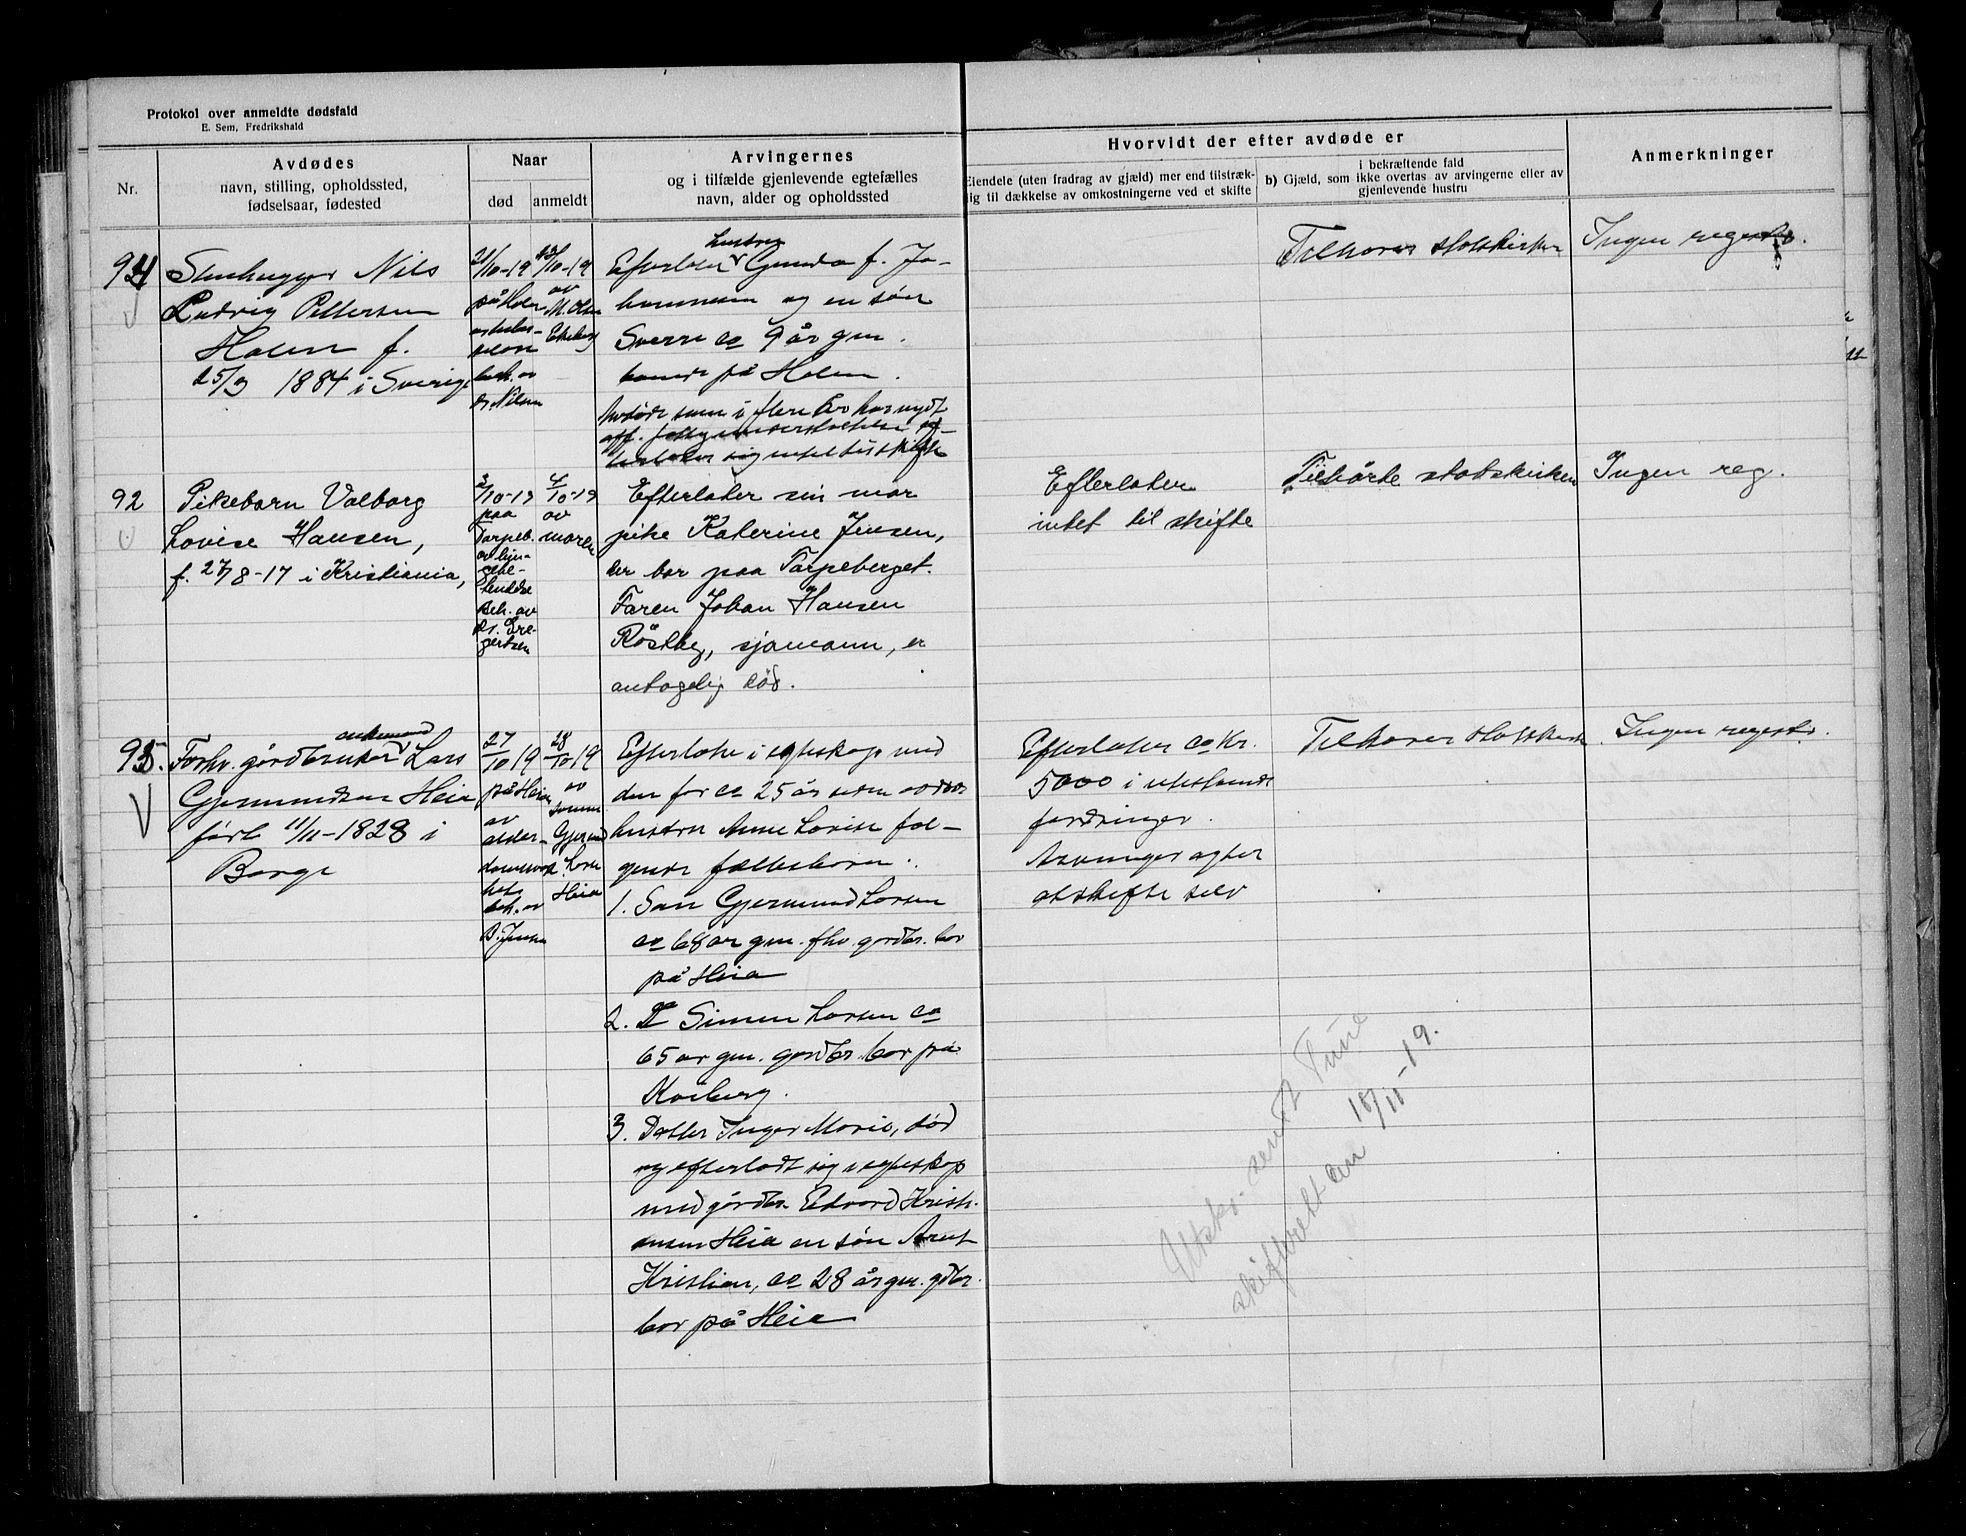 Protokol over anmeldte dødsfald
E. Sem, Fredrikshald
Nr.
Avdødes
navn, stilling, opholdssted,
fødselsaar, fødested
Naar
død
anmeldt
Arvingernes
og i tilfælde gjenlevende egtefælles
navn, alder og opholdssted
Hvorvidt der efter avdøde er
Eiendele (uten fradrag av gjæld) mer end tilstræk-
lig til dækkelse av omkostningerne ved et skifte
i bekræftende fald
b) Gjæld, som ikke overtas av arvingerne eller av
gjenlevende hustru
Anmerkninger
Stenhugger Nils
Ludvig Pettersen
Holen f.
25/3 1884 i Sverige
21/10-19
på Holen
beh. av
dr. Nilsen
/10-19
av
M. Olsen
hustru
Efterlater Gunda f. Jo-
hannesen og en søn
Sverre ca 9 år gm.
boende på Holen.
Avdøde som i flere år har nydt
off. understøttelse
intet til skifte
Tilhører statskirken
Ingen regestr.
92
Pikebarn Valborg
Lovise Hansen,
f. 27/8-17 i Kristiania,
2/10-19
paa
Torpeb.
av lun-
gebe-
tendelse
Beh. av
dr. Gre-
gertsen
4/10-19
av
moren
Efterlater sin mor
pike Katerine Jensen,
der bor paa Torpeberget.
Faren Johan Hansen
Røstbg, sjømann, er
antagelig død.
Efterlater
intet til skifte
Tilhørte statskirken
Ingen reg.
95.
enkemand
Forhv. gårdbruker Lars
Gjermundsen Heia
født 11/11-1828 i
Borge
27/10 19
på Heia
av
alder-
domssvak
het
beh. av
D. Jensen
28/10 19
av
sønnen
Gjermund
Larsen
Heia
Efterlate i egteskap med
den for ca 25 år siden avdøde
hustru Anne Lovise føl-
gende fællesbarn:
1. Søn Gjermund Larsen
ca 68 år gm. fhv. gårdbr. bor
på Heia
2. D Simen Larsen ca
65 år gm. gårdbr. bor på
Kaiberg.
3. Datter Inger Marie, død
og efterlodt sig i egteskap
med gårdbr. Edvard Kristi-
ansen Heia en søn Arnt
Kristian, ca 28 år gm. gdbr.
bor på Heia
Efterlater ca kr.
5000 i utestående
fordringer.
Arvinger agter
at skifte selv
Tilhører statskirken
Ingen regestr.
Utskr. sendt Tune
skifterett den 18/11-19.